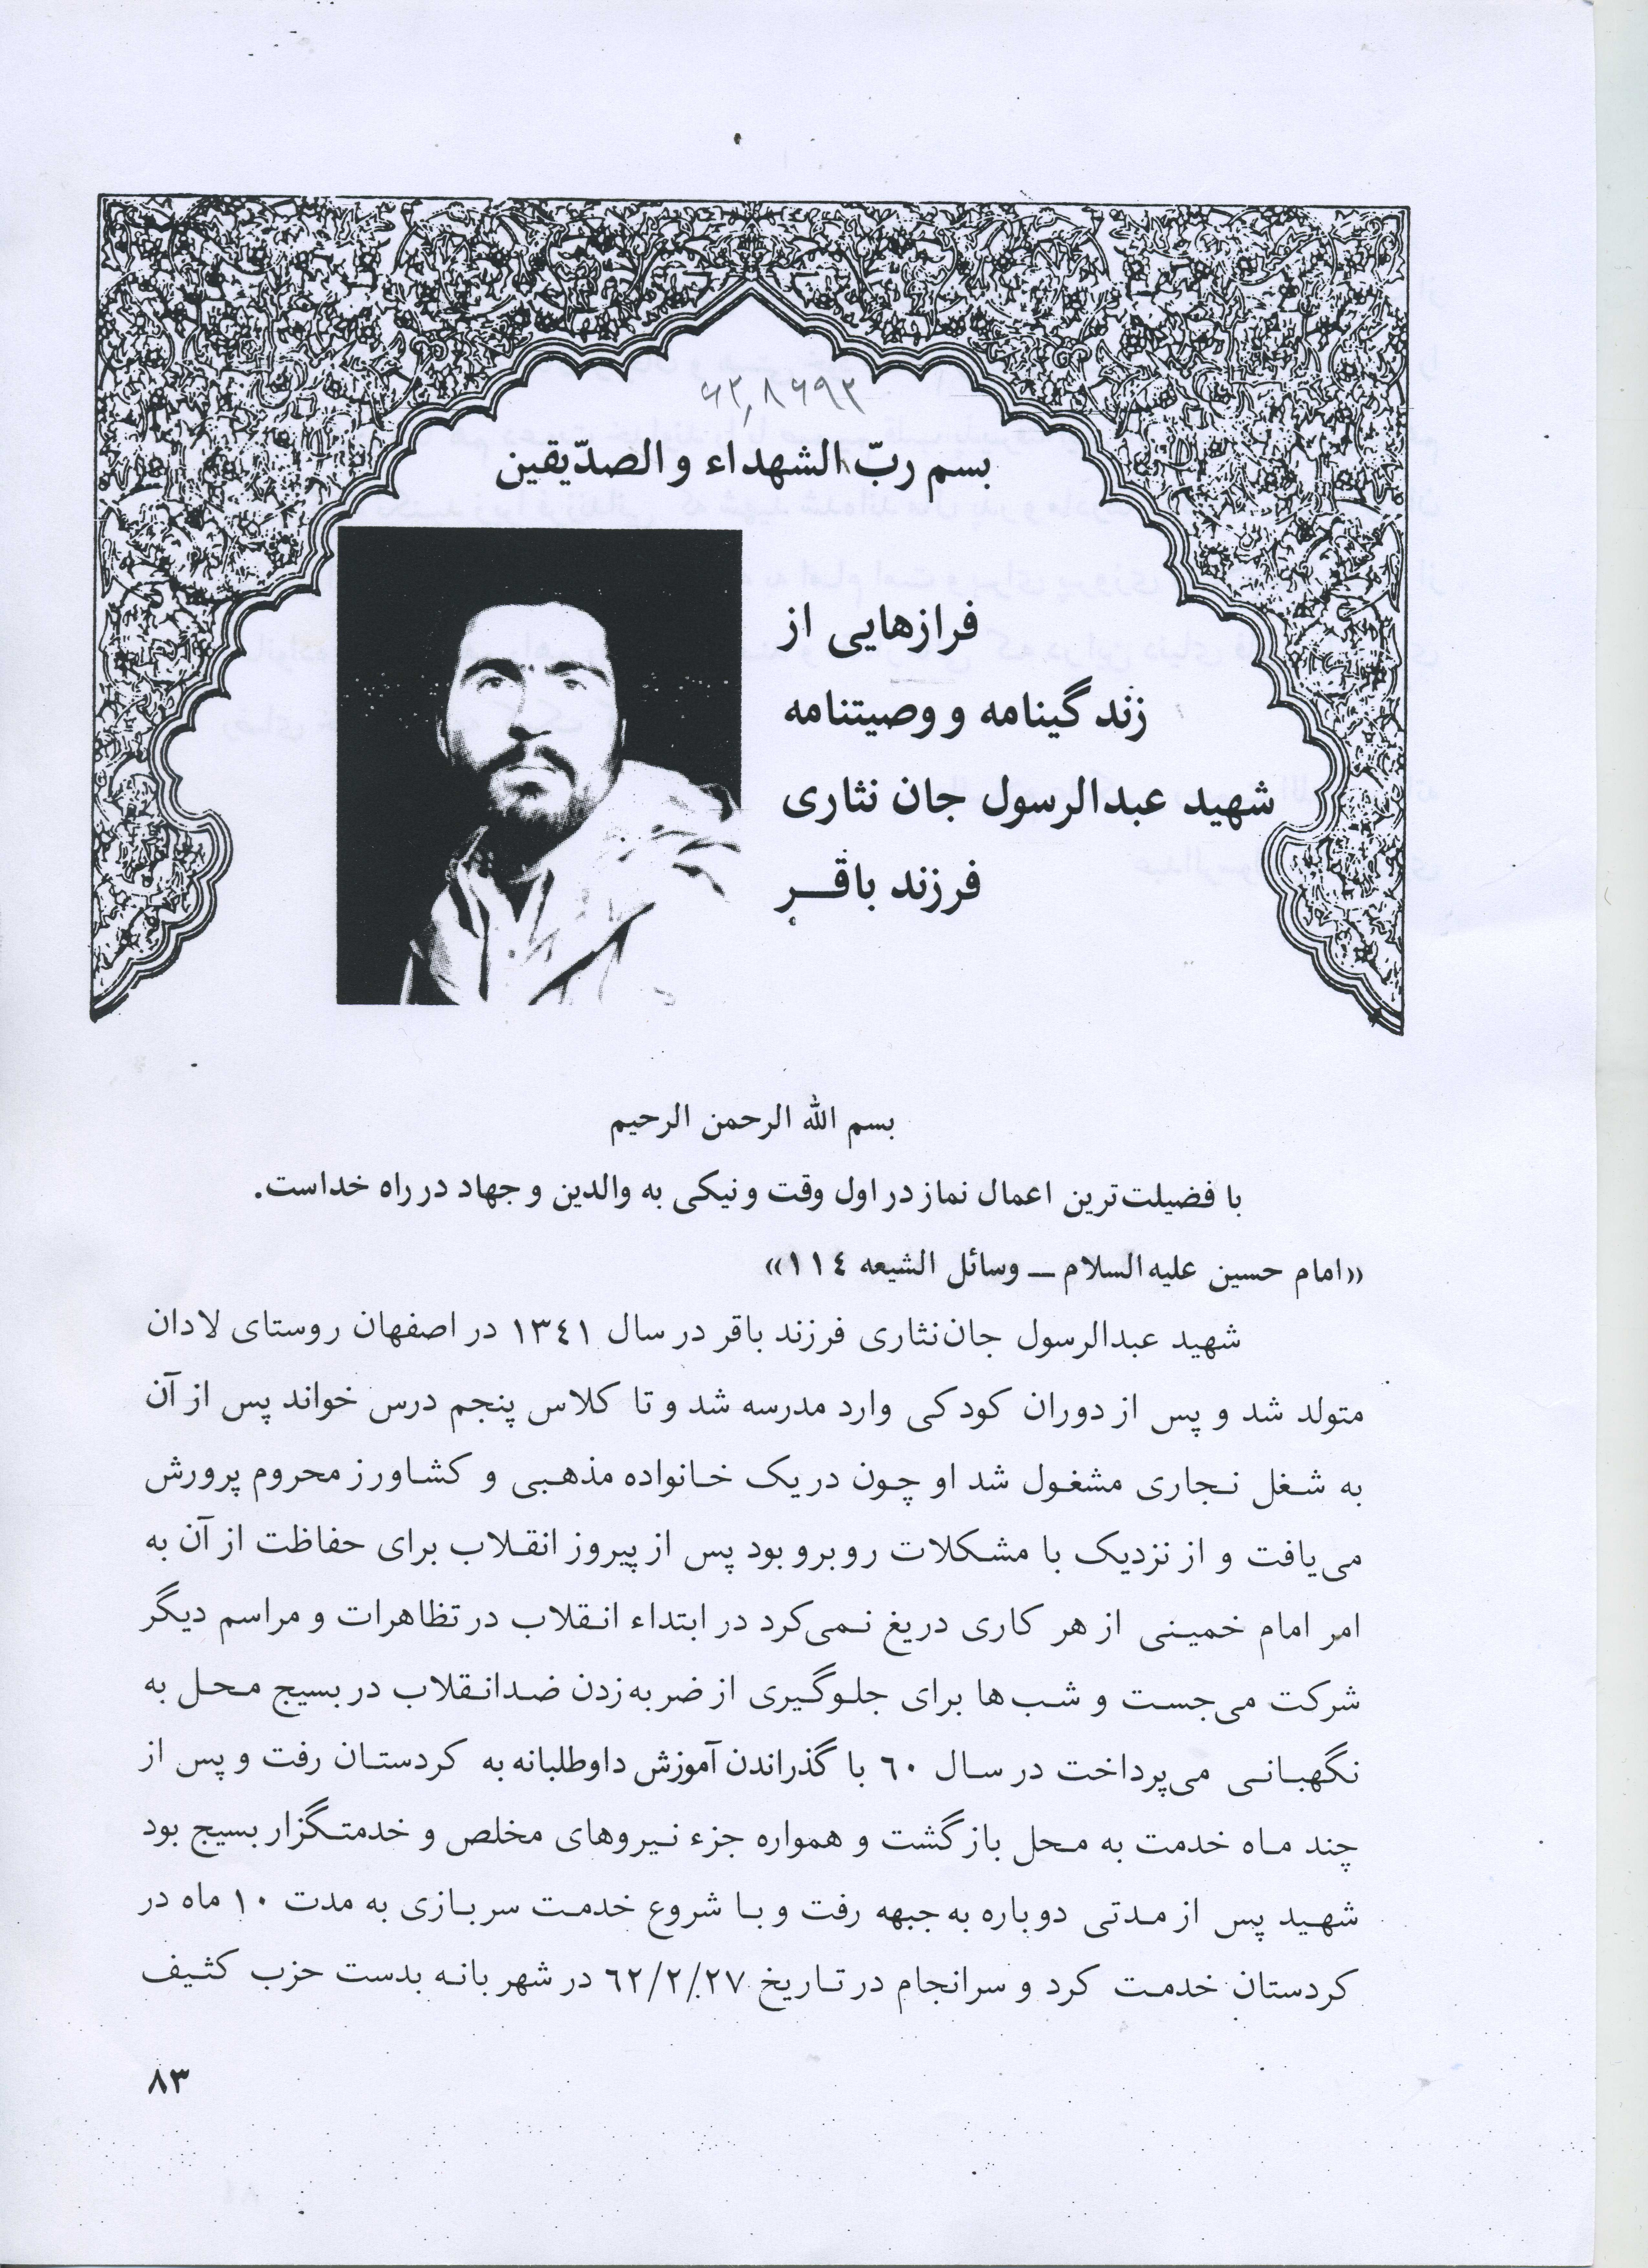 ۶۲٫۸۶۹۲
بسم ربّ الشهداء و الصدّیقین
فرازهایی از
زندگینامه و وصیتنامه
شهید عبدالرسول جان نثاری
فرزند باقـر
بسم الله الرحمن الرحیم
با فضیلت‌ترین اعمال نماز در اول وقت و نیکی به والدین و جهاد در راه خداست.
«امام حسین علیه‌السلام ــ وسائل الشیعه ١١٤»
شهید عبدالرسول جان‌نثاری فرزند باقر در سال ١٣٤١ در اصفهان روستای لادان
متولد شد و پس از دوران کودکی وارد مدرسه شد و تا کلاس پنجم درس خواند پس از آن
به شغل نجاری مشغول شد او چون در یک خانواده مذهبی و کشاورز محروم پرورش
می‌یافت و از نزدیک با مشکلات روبرو بود پس از پیروز انقلاب برای حفاظت از آن به
امر امام خمینی از هر کاری دریغ نمی‌کرد در ابتداء انقلاب در تظاهرات و مراسم دیگر
شرکت می‌جست و شب‌ها برای جلوگیری از ضربه‌زدن ضدانقلاب در بسیج محل به
نگهبانی می‌پرداخت در سال ٦٠ با گذراندن آموزش داوطلبانه به کردستان رفت و پس از
چند ماه خدمت به محل بازگشت و همواره جزء نیروهای مخلص و خدمتگزار بسیج بود
شهید پس از مدتی دوباره به جبهه رفت و با شروع خدمت سربازی به مدت ١٠ ماه در
کردستان خدمت کرد و سرانجام در تاریخ ٦٢/٢/٢٧ در شهر بانه بدست حزب کثیف
٨٣